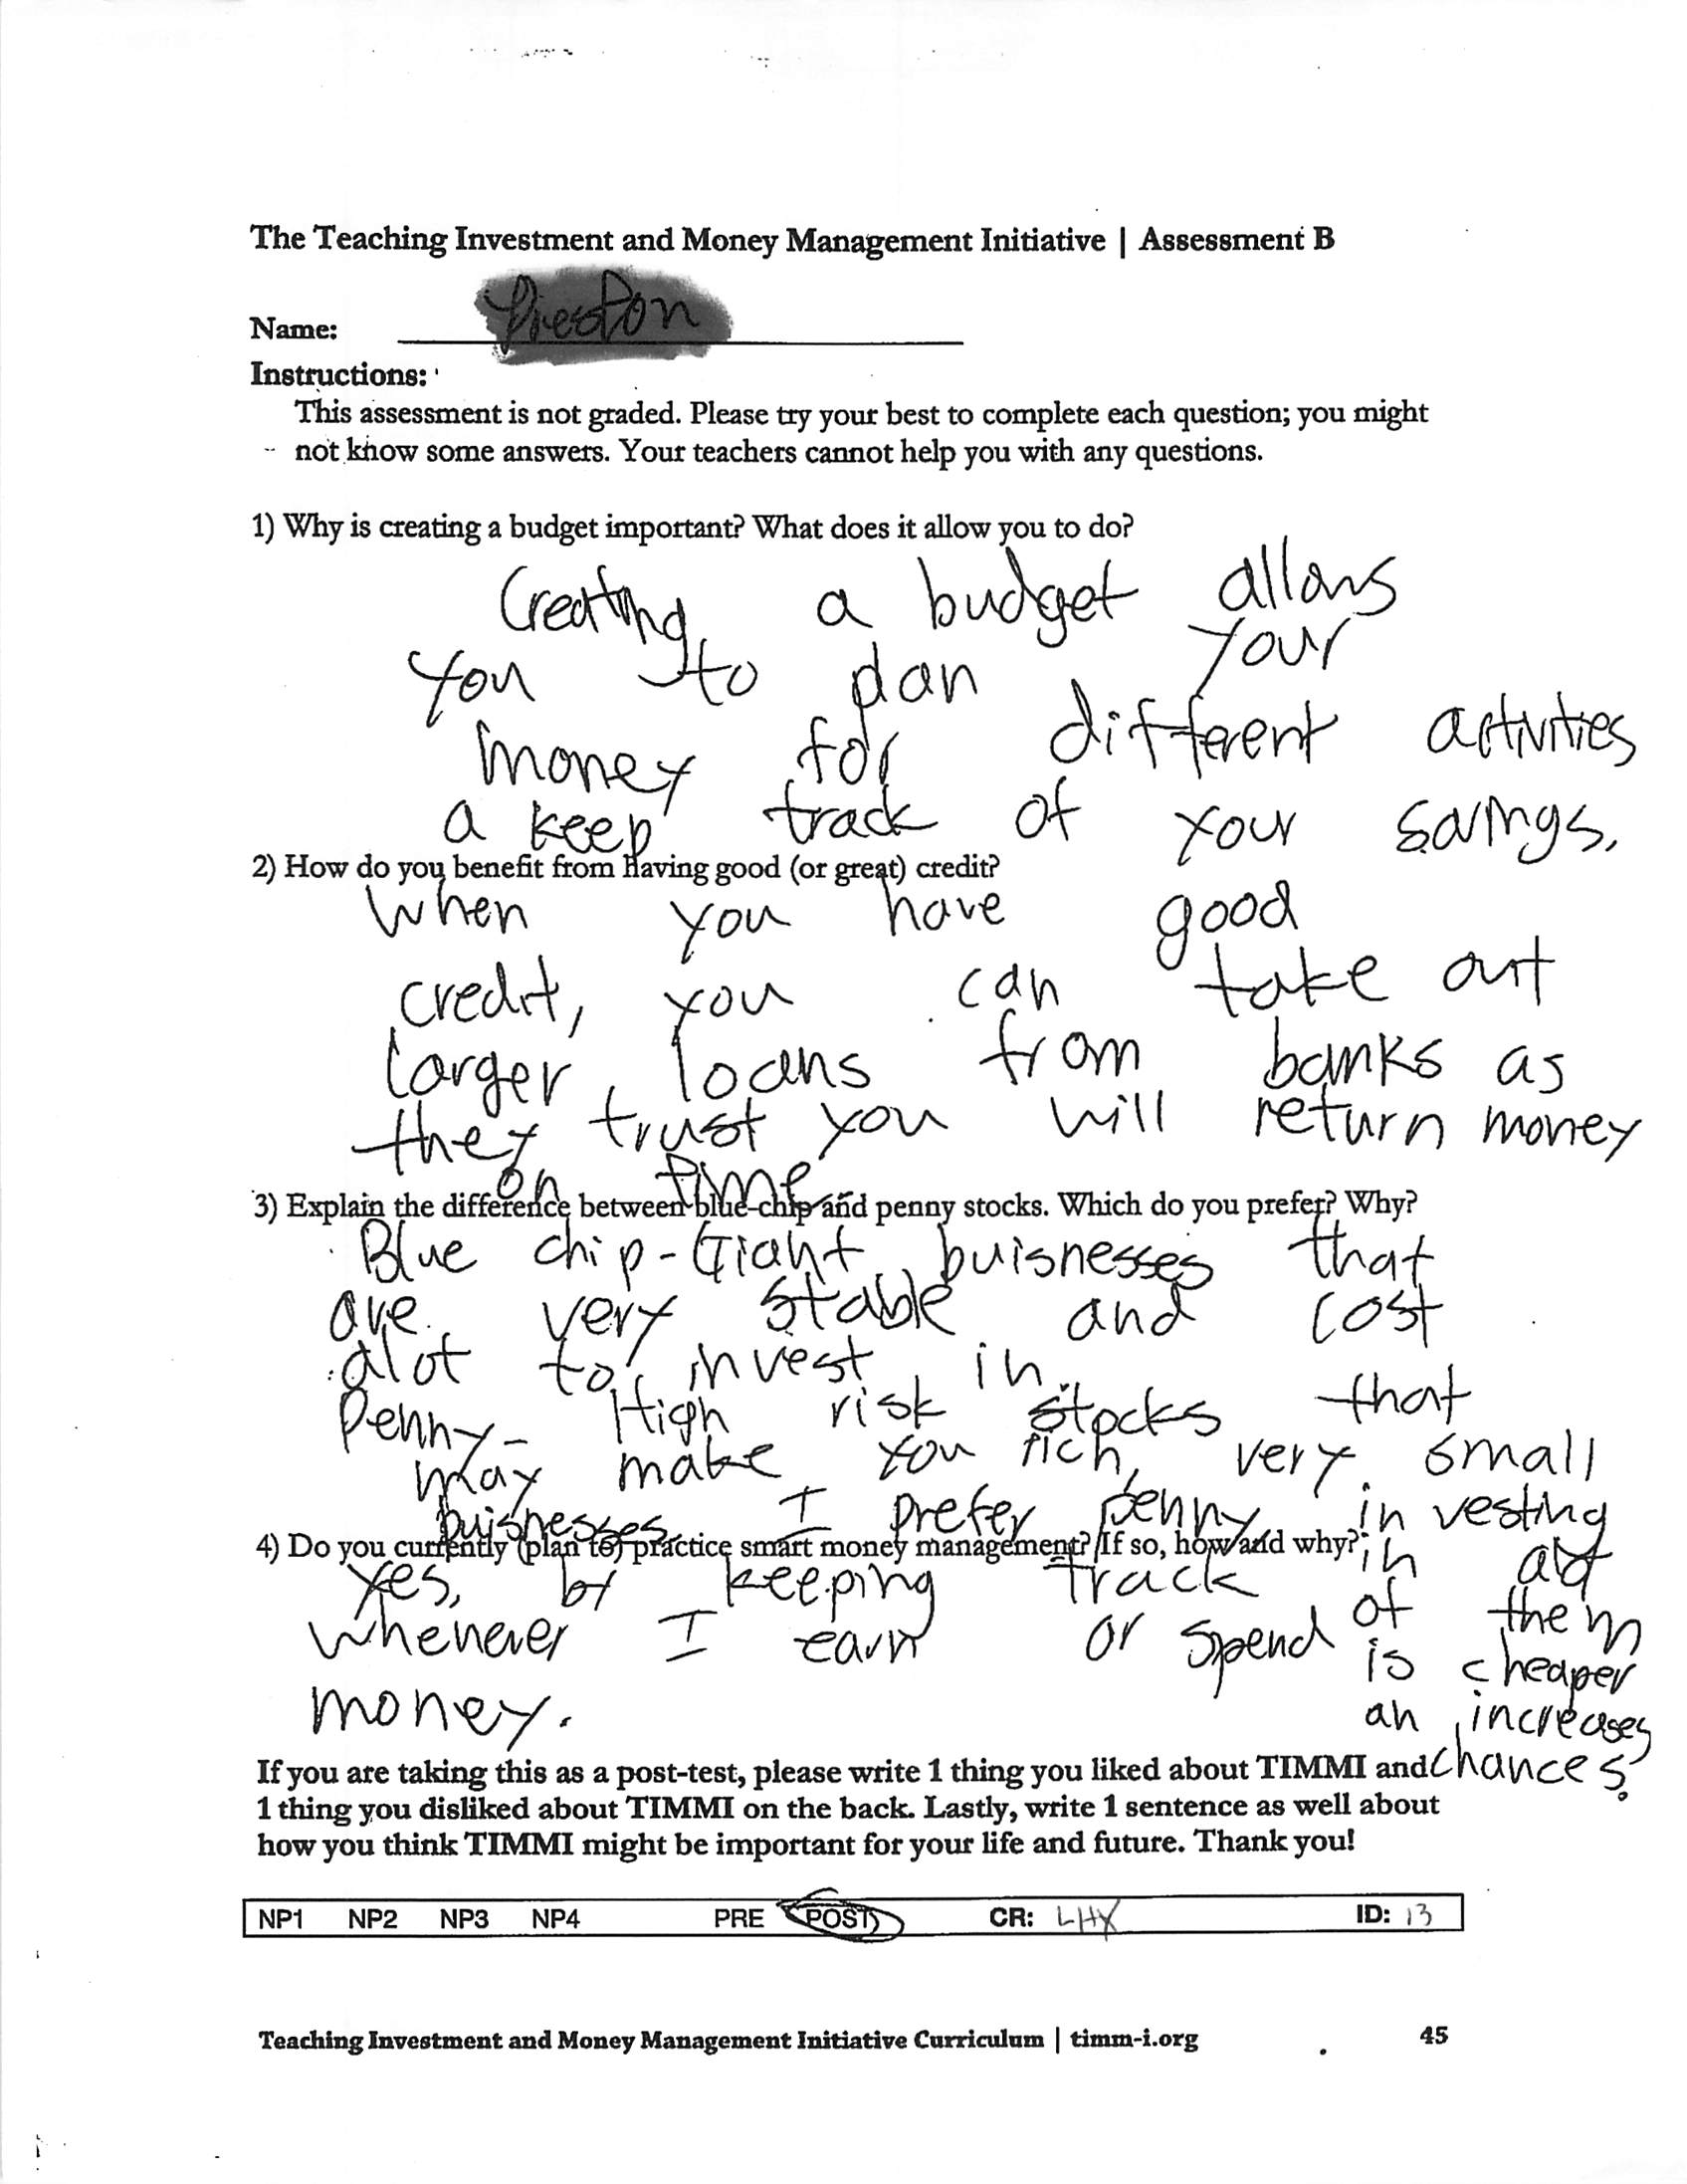 The Teaching Investment and Money Management Initiative | Assessment B
Name: Preston
Instructions:
This assessment is not graded. Please try your best to complete each question; you might
not know some answers. Your teachers cannot help you with any questions.
1) Why is creating a budget important? What does it allow you to do?
Creating a budget allows
you to plan your
money for different activities
a keep track of your savings.
2) How do you benefit from having good (or great) credit?
When you have good
credit, you can take out
larger loans from banks as
they trust you will return money
on time
3) Explain the difference between blue-chip and penny stocks. Which do you prefer? Why?
Blue chip-Giant buisnesses that
are very stable and cost
alot to invest in.
Penny- High risk stocks that
may make you rich, very small
buisnesses I prefer penny investing
in alot
of them
is cheaper
an increases
chances.
4) Do you currently (plan to) practice smart money management? If so, how and why?
Yes, by keeping track
whenever I earn or spend
money.
If you are taking this as a post-test, please write 1 thing you liked about TIMMI and
1 thing you disliked about TIMMI on the back. Lastly, write 1 sentence as well about
how you think TIMMI might be important for your life and future. Thank you!
NP1 NP2 NP3 NP4 PRE POST CR: LHX ID: 13
Teaching Investment and Money Management Initiative Curriculum | timm-i.org 45